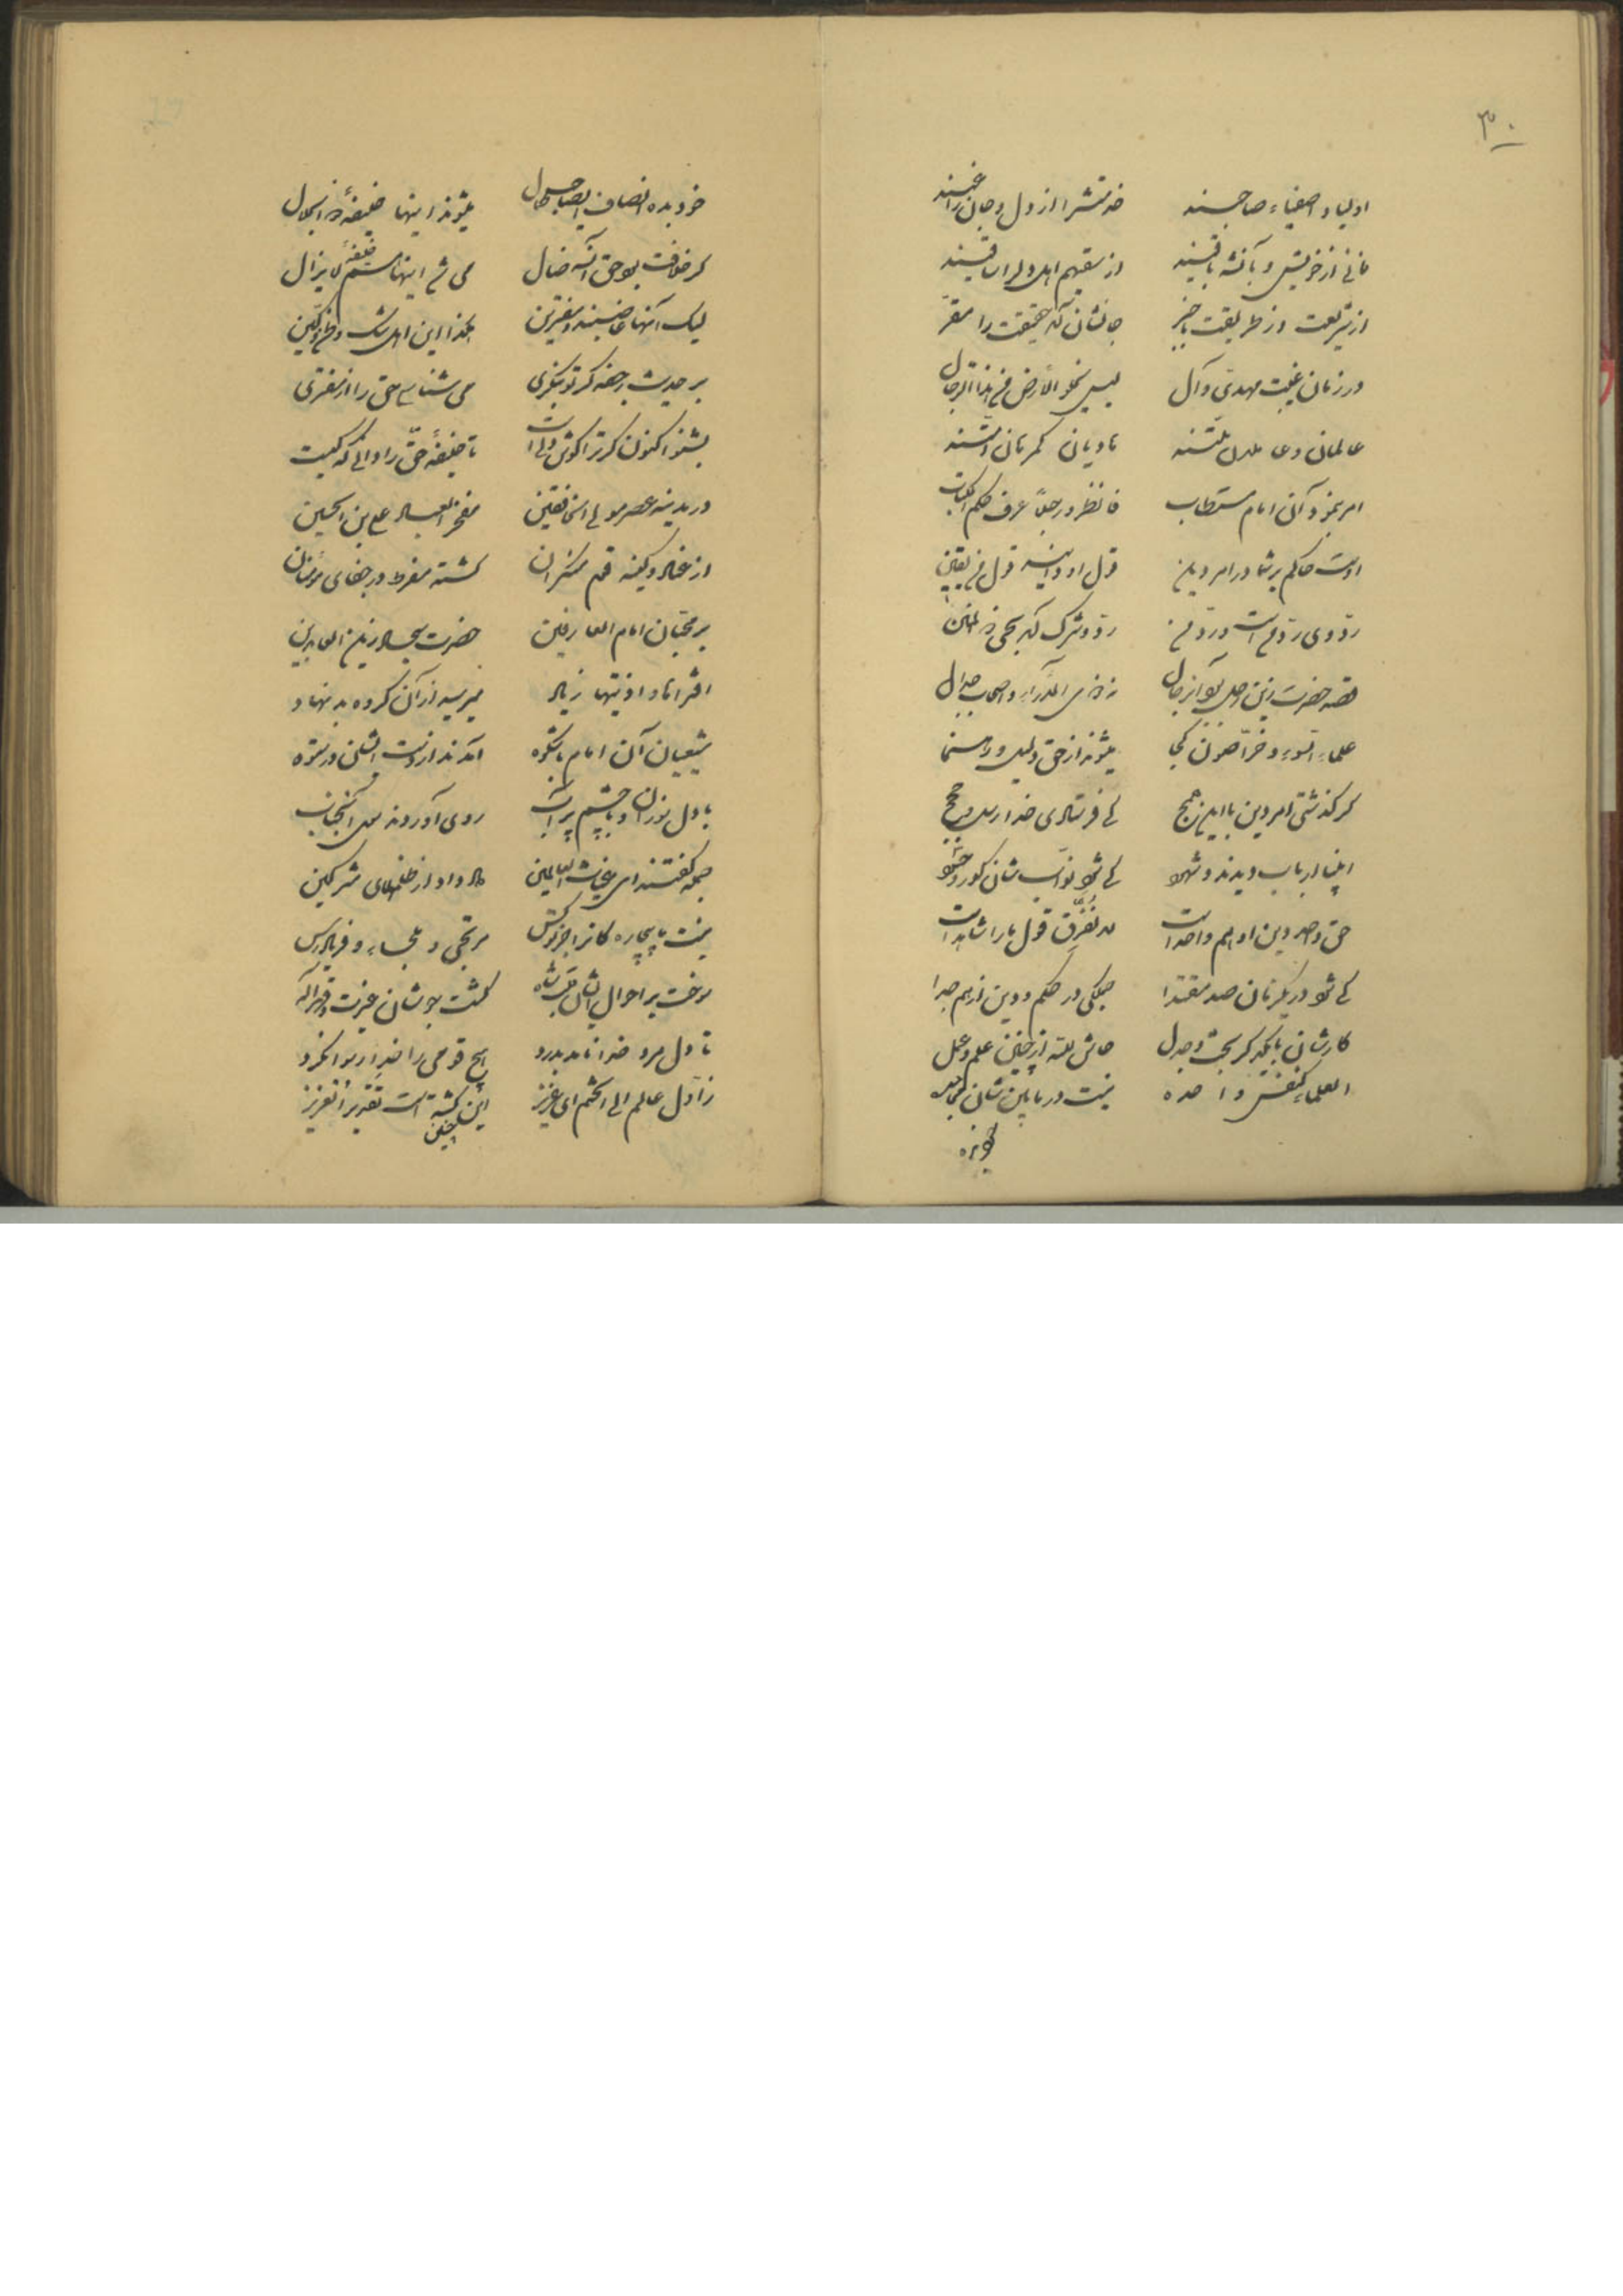 ۳۰
اولیا و اصفیاء صاحبند خدمتشرا از دل و جان راغبند
فانی از خویش و بالله باقیند از سقیهم اهل دل را ساقیند
از شریعت وز طریقت باخبر جانشان که حقیقت را مقر
در زمان غیبت مهدی و آل لیس نخلو الارض من هذا الرجال
عالمان و عاملان هادیان گمرهان
امر بنمود آن امام مستطاب فانظروا رجلا عرف حکم الکتاب
اوست حاکم بر شما در امر دین قول او دانید قول من یقین
رد وی رد من است و رد من رد و شرک بحق ذو المنن
حضرت زین رجال اصحاب جدال
علماء السوء و خراصون کجا میشوند از حق دلیل و رهنما
گر گذشتی امر دین با این همج کی فرستادی خدا رسل و حجج
انبیا ارباب دیدند و شهود کی شود نواب شان کور و حسود
حق واحد دین او هم واحد است لا نفرق قول ما را شاهد است
کی شود در یکزمان صد مقتدا جملگی در حکم و دین از هم جدا
کارشان با یکدگر بحث و جدل حاش لله از چنین علم و عمل
العلماء کنفس واحده نیست در مابین شان
خود بده انصاف ایصاحب کمال میشوند اینها خلیفه ذو الجلال
گر خلافت بود حق آن ضال می شد اینها هم خلیفه لا یزال
لیک آنها غاصبند و مفترین هکذا این اهل شک و ظن و تخمین
بر حدیث رجعه گر تو بنگری می شناسی حق را از مفتری
بشنو اکنون گر ترا گوش دل است تا خلیفه حق را دانی که کیست
در مدینه عصر مولی الخافقین مفخر العباد علی بن الحسین
از عناد و کینه قوم منکران گشته مفرط در جفای مؤمنان
بر محبان امام العارفین حضرت سجاد زین العابدین
افترا و اذیتها زیاد میرسید از آن گروه بد نهاد
شیعیان آن امام باشکوه آمدند از دست ایشان در ستوه
با دل سوزان و با چشم پر آب روی آوردند سوی آنجناب
جمله گفتند ای غیاث العالمین داد داد از ظلمهای مشرکین
نیست ما بیچاره گانرا جز تو کس مرتجی و ملجاء و فریادرس
سوخت بر احوال ایشان قلب شاه گشت جوشان غیرت و قهر اله
تا دل مرد خدا نامد بدرد هیچ قومی را خدا رسوا نکرد
ز اول عالم الی الختم ای عزیز این چنین گشته است تقدیر العزیز